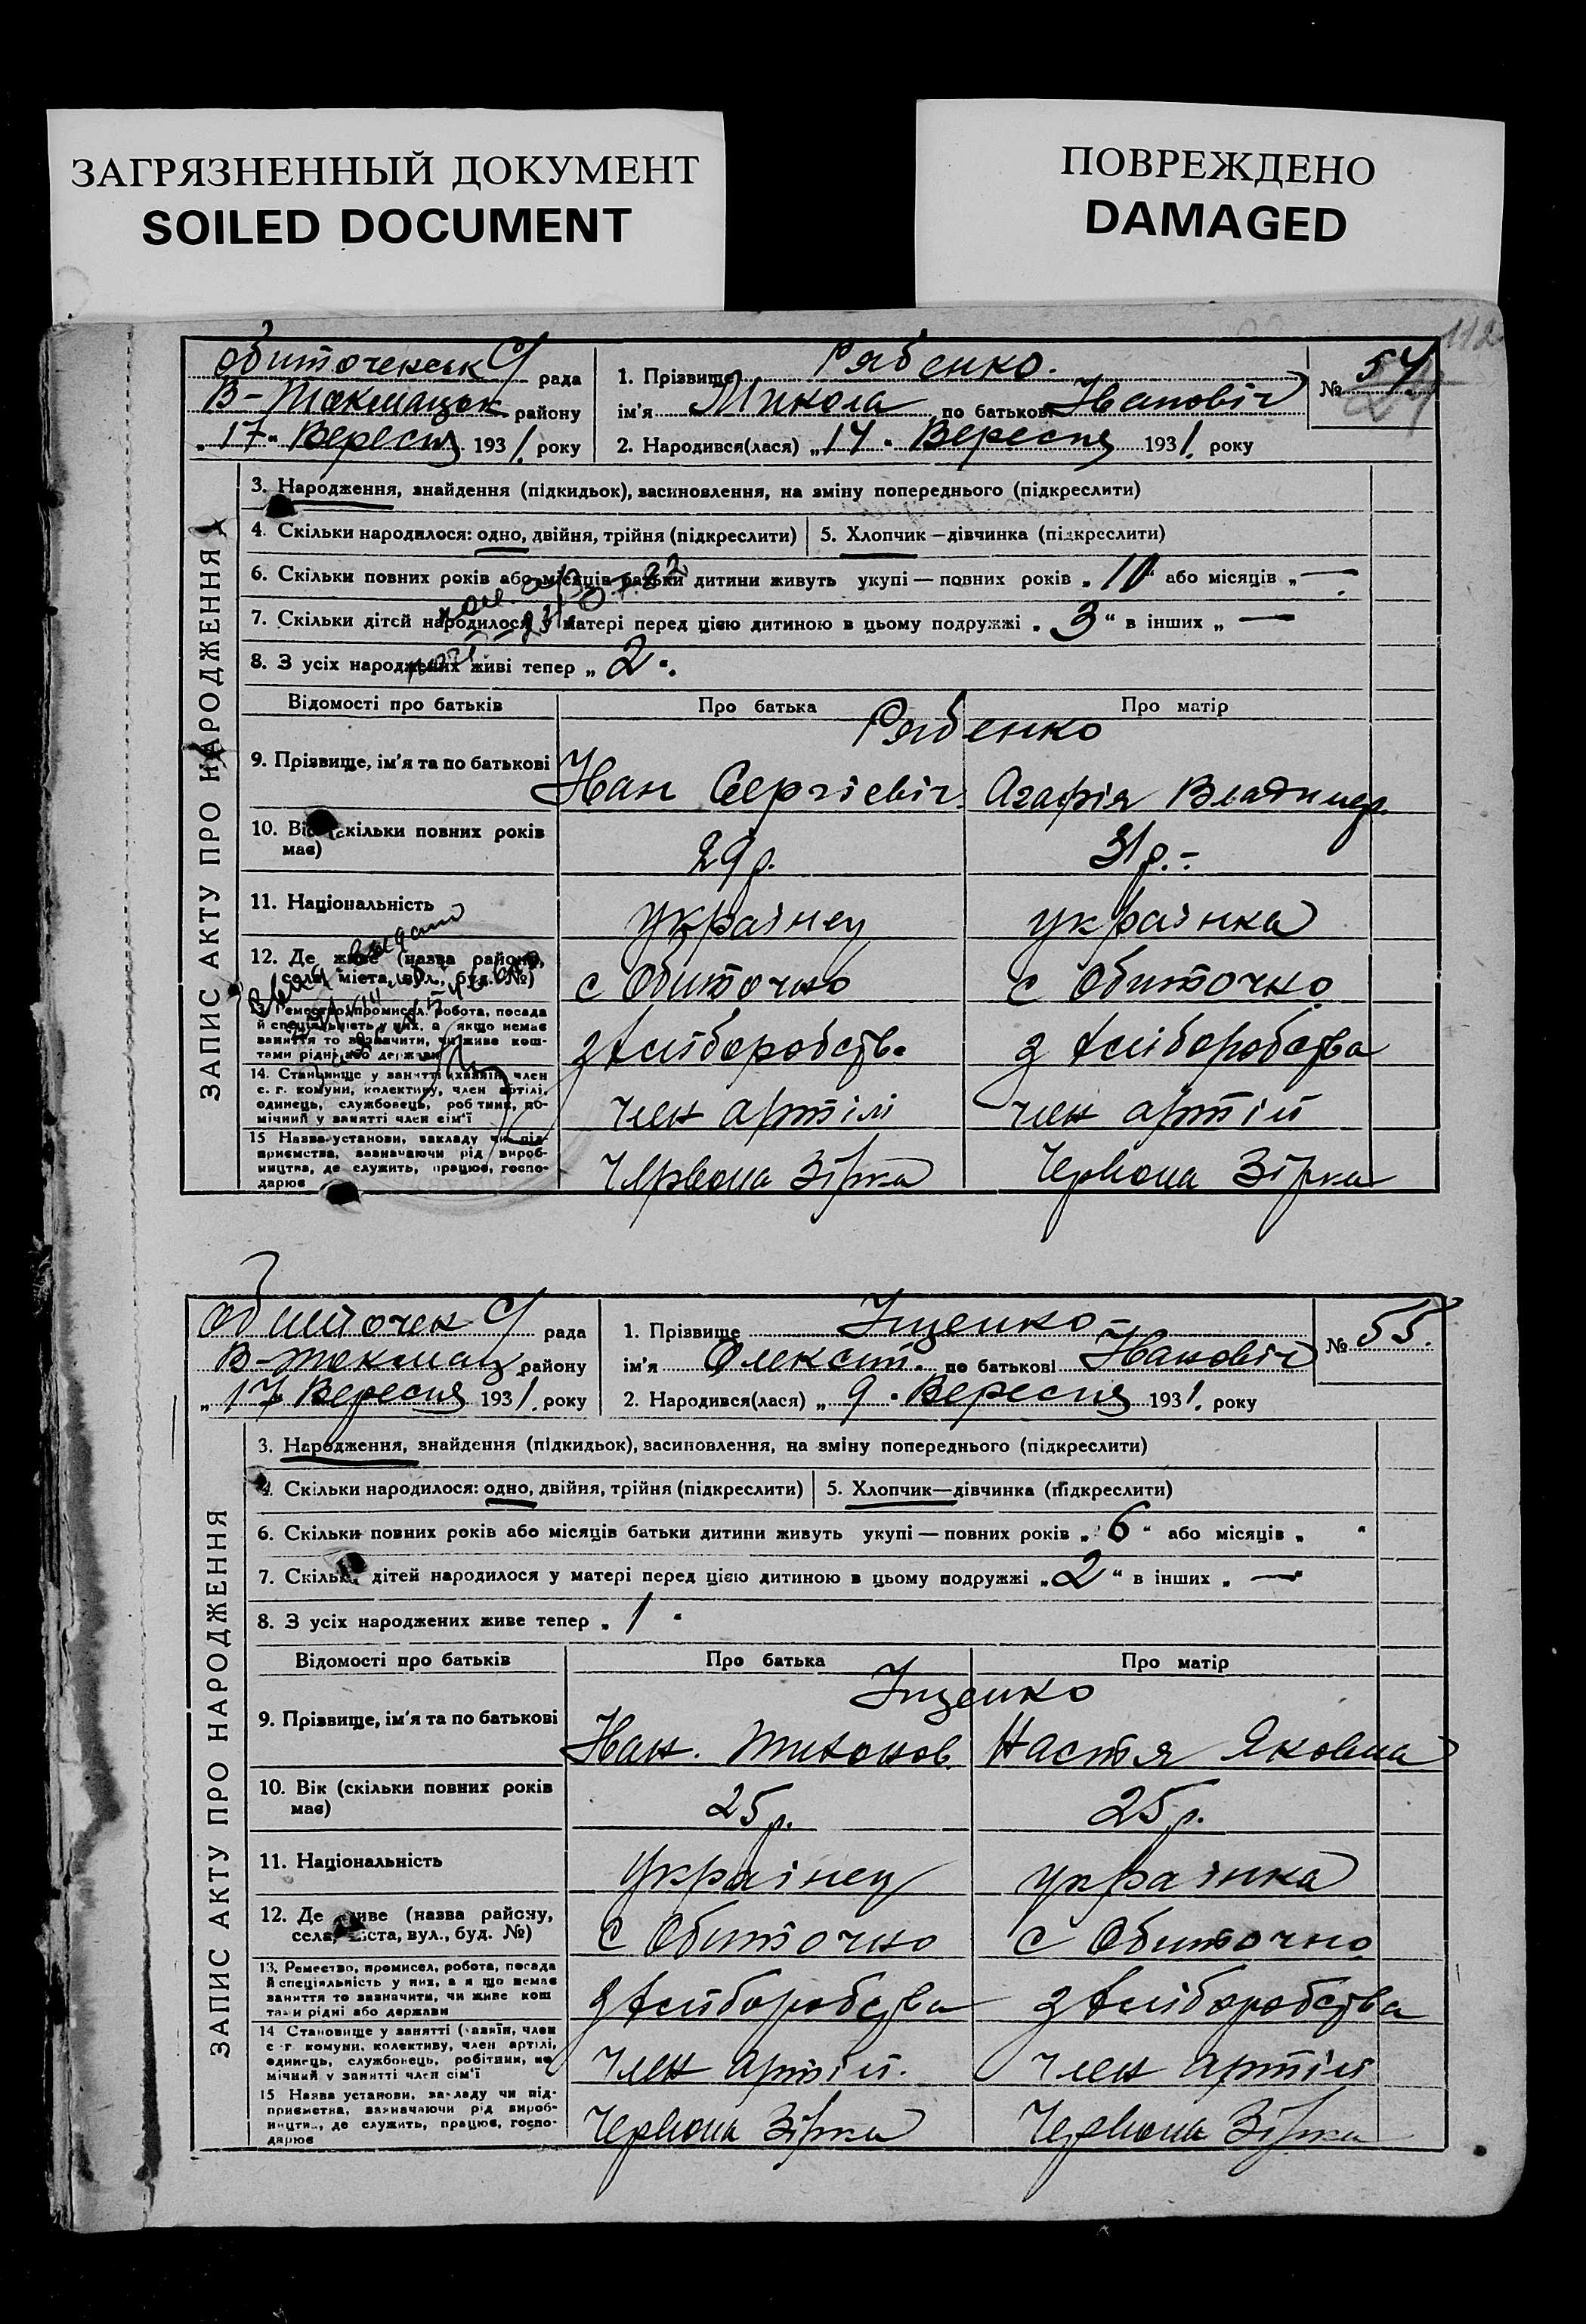 ЗАГРЯЗНЕННЫЙ ДОКУМЕНТ
SOILED DOCUMENT
ПОВРЕЖДЕНО
DAMAGED
112
Обиточенськ С/ рада
В-Токмацьк району
„17" Вересня 1931. року
1. Прізвище Рябенко.
ім'я Микола по батькові Іванович
2. Народився(лася) „14" Вересня 1931. року
№ 54
ЗАПИС АКТУ ПРО НАРОДЖЕННЯ
3. Народження, знайдення (підкидьок), засиновлення, на зміну попереднього (підкреслити)
4. Скільки народилося: одно, двійня, трійня (підкреслити) 5. Хлопчик—дівчинка (підкреслити)
6. Скільки повних років або місяців батьки дитини живуть укупі — повних років „10" або місяців „—
7. Скільки дітей народилося у матері перед цією дитиною в цьому подружжі „3" в інших „—
8. З усіх народжених живі тепер „2".
Відомості про батьків Про батька Про матір
Рябенко
9. Прізвище, ім'я та по батькові Іван Сергієвіч Агафія Владимер.
10. Вік (скільки повних років має) 29 р. 31 р.-
11. Національність українец українка
12. Де живе (назва району, села, міста, вул., буд. №) с Обиточно с Обиточно
13. Ремество, промисел, робота, посада й спеціяльність у них, а якщо немає заняття то зазначити, чи живе коштами рідні або держави з хліборобств. з хліборобства
14. Становище у занятті (хазяїн, член с. г. комуни, колективу, член артілі, одинець, службовець, робітник, помічний у занятті член сім'ї член артілі член артілі
15 Назва установи, закладу чи підприємства, зазначаючи рід виробництва, де служить, працює, господарює Червона Зірка Червона Зірка
Обиточен С/ рада
В-токмац. району
„17 Вересня 1931. року
1. Прізвище Іщенко
ім'я Олексій. по батькові Іванович
2. Народився(лася) „9" Вересня 1931. року
№ 55.
ЗАПИС АКТУ ПРО НАРОДЖЕННЯ
3. Народження, знайдення (підкидьок), засиновлення, на зміну попереднього (підкреслити)
4. Скільки народилося: одно, двійня, трійня (підкреслити) 5. Хлопчик—дівчинка (підкреслити)
6. Скільки повних років або місяців батьки дитини живуть укупі — повних років „6" або місяців „ "
7. Скільки дітей народилося у матері перед цією дитиною в цьому подружжі „2" в інших „—"
8. З усіх народжених живе тепер „1"
Відомості про батьків Про батька Про матір
Іщенко
9. Прізвище, ім'я та по батькові Іван. Тихонов. Настя Яковна
10. Вік (скільки повних років має) 25 р. 25 р.
11. Національність українец українка
12. Де живе (назва району, села, міста, вул., буд. №) с Обиточно с Обиточно
13. Ремество, промисел, робота, посада й спеціяльність у них, а якщо немає заняття то зазначити, чи живе коштами рідні або держави з хліборобства з хліборобства
14 Становище у занятті (хазяїн, член с г. комуни, колективу, член артілі, одинець, службовець, робітник, помічний у занятті член сім'ї член артілі. член артілі
15 Назва установи, закладу чи підприємства, зазначаючи рід виробництва, де служить, працює, господарює Червона Зірка Червона Зірка